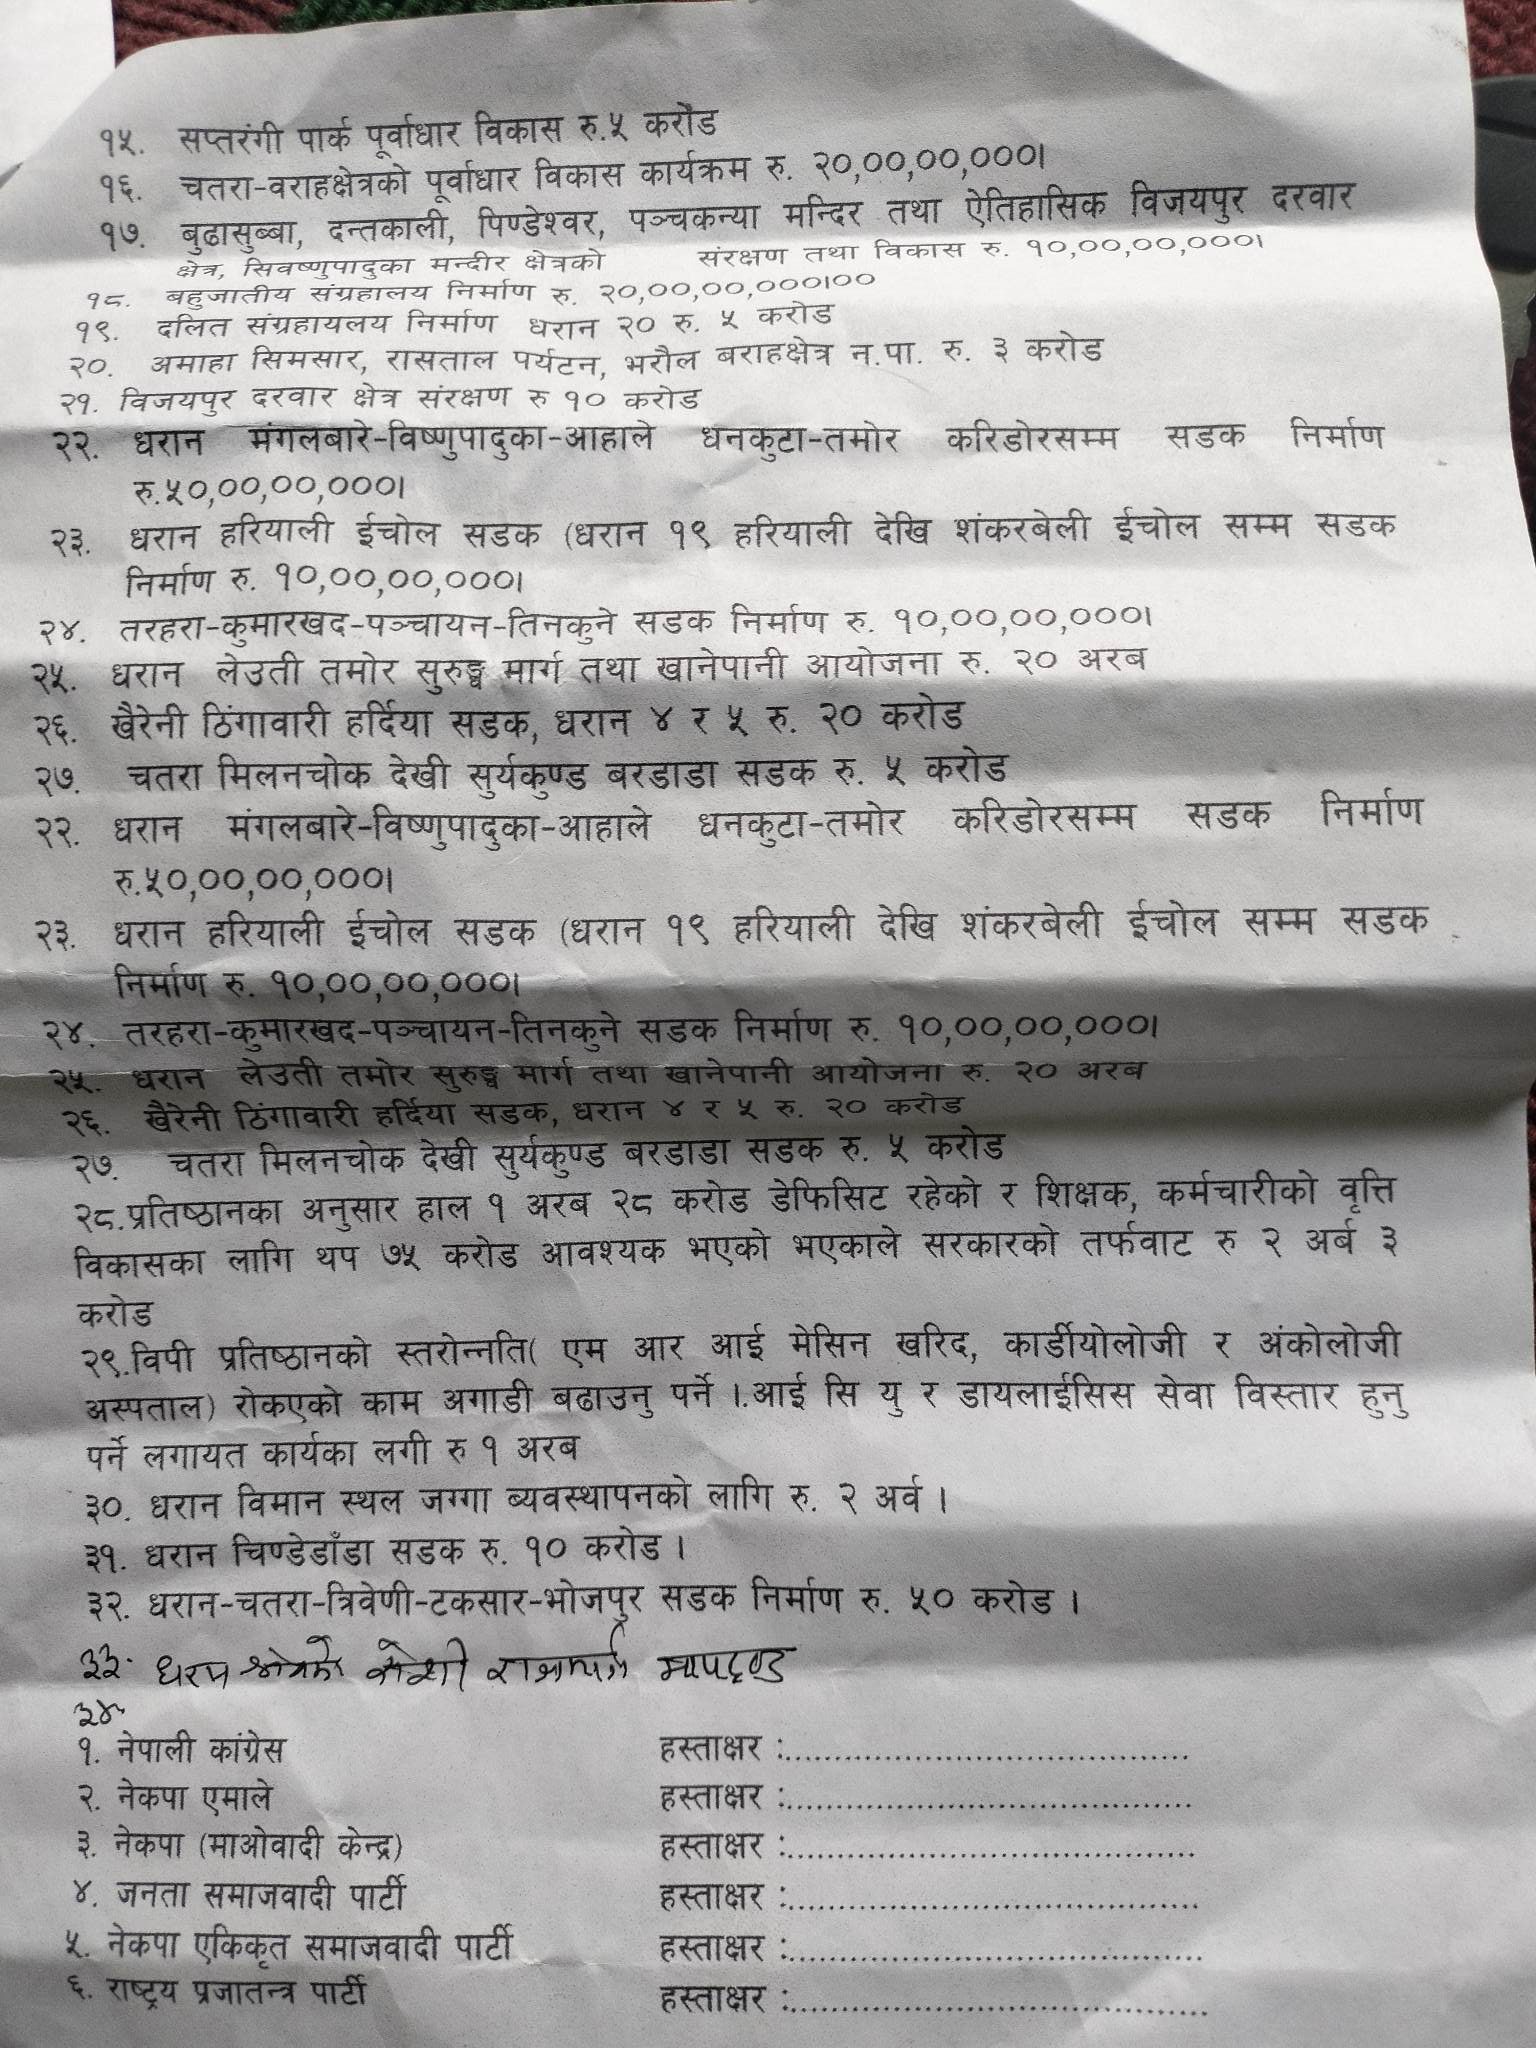 १५. सप्तरंगी पार्क पूर्वाधार विकास रु.५ करोड
१६. चतरा-वराहक्षेत्रको पूर्वाधार विकास कार्यक्रम रु. २०,००,००,०००।
१७. बुढासुब्बा, दन्तकाली, पिण्डेश्वर, पञ्चकन्या मन्दिर तथा ऐतिहासिक विजयपुर दरवार
क्षेत्र, सिवष्णुपादुका मन्दीर क्षेत्रको संरक्षण तथा विकास रु. १०,००,००,०००।
१८. बहुजातीय संग्रहालय निर्माण रु. २०,००,००,०००।००
१९. दलित संग्रहायलय निर्माण धरान २० रु. ५ करोड
२०. अमाहा सिमसार, रासताल पर्यटन, भरौल बराहक्षेत्र न.पा. रु. ३ करोड
२१. विजयपुर दरवार क्षेत्र संरक्षण रु १० करोड
२२. धरान मंगलबारे-विष्णुपादुका-आहाले धनकुटा-तमोर करिडोरसम्म सडक निर्माण
रु.५०,००,००,०००।
२३. धरान हरियाली ईचोल सडक (धरान १९ हरियाली देखि शंकरबेली ईचोल सम्म सडक
निर्माण रु. १०,००,००,०००।
२४. तरहरा-कुमारखद-पञ्चायन-तिनकुने सडक निर्माण रु. १०,००,००,०००।
२५. धरान लेउती तमोर सुरुङ्ग मार्ग तथा खानेपानी आयोजना रु. २० अरब
२६. खैरेनी ठिंगावारी हर्दिया सडक, धरान ४ र ५ रु. २० करोड
२७. चतरा मिलनचोक देखी सुर्यकुण्ड बरडाडा सडक रु. ५ करोड
२२. धरान मंगलबारे-विष्णुपादुका-आहाले धनकुटा-तमोर करिडोरसम्म सडक निर्माण
रु.५०,००,००,०००।
२३. धरान हरियाली ईचोल सडक (धरान १९ हरियाली देखि शंकरबेली ईचोल सम्म सडक
निर्माण रु. १०,००,००,०००।
२४. तरहरा-कुमारखद-पञ्चायन-तिनकुने सडक निर्माण रु. १०,००,००,०००।
२५. धरान लेउती तमोर सुरुङ्ग मार्ग तथा खानेपानी आयोजना रु. २० अरब
२६. खैरेनी ठिंगावारी हर्दिया सडक, धरान ४ र ५ रु. २० करोड
२७. चतरा मिलनचोक देखी सुर्यकुण्ड बरडाडा सडक रु. ५ करोड
२८.प्रतिष्ठानका अनुसार हाल १ अरब २८ करोड डेफिसिट रहेको र शिक्षक, कर्मचारीको वृत्ति
विकासका लागि थप ७५ करोड आवश्यक भएको भएकाले सरकारको तर्फवाट रु २ अर्ब ३
करोड
२९.विपी प्रतिष्ठानको स्तरोन्नति( एम आर आई मेसिन खरिद, कार्डीयोलोजी र अंकोलोजी
अस्पताल) रोकएको काम अगाडी बढाउनु पर्ने ।.आई सि यु र डायलाईसिस सेवा विस्तार हुनु
पर्ने लगायत कार्यका लगी रु १ अरब
३०. धरान विमान स्थल जग्गा ब्यवस्थापनको लागि रु. २ अर्व ।
३१. धरान चिण्डेडाँडा सडक रु. १० करोड ।
३२. धरान-चतरा-त्रिवेणी-टकसार-भोजपुर सडक निर्माण रु. ५० करोड ।
३३. धरान क्षेत्रको कोशी राजमार्ग मापदण्ड
३४
१. नेपाली कांग्रेस हस्ताक्षर :........................................
२. नेकपा एमाले हस्ताक्षर :........................................
३. नेकपा (माओवादी केन्द्र) हस्ताक्षर :........................................
४. जनता समाजवादी पार्टी हस्ताक्षर :........................................
५. नेकपा एकिकृत समाजवादी पार्टी हस्ताक्षर :........................................
६. राष्ट्रय प्रजातन्त्र पार्टी हस्ताक्षर :........................................